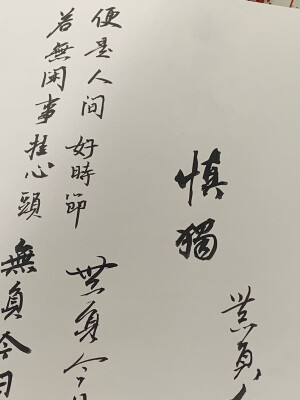 慎獨
無負
便是人间好時節
若無闲事挂心頭
無負今日
無負今日